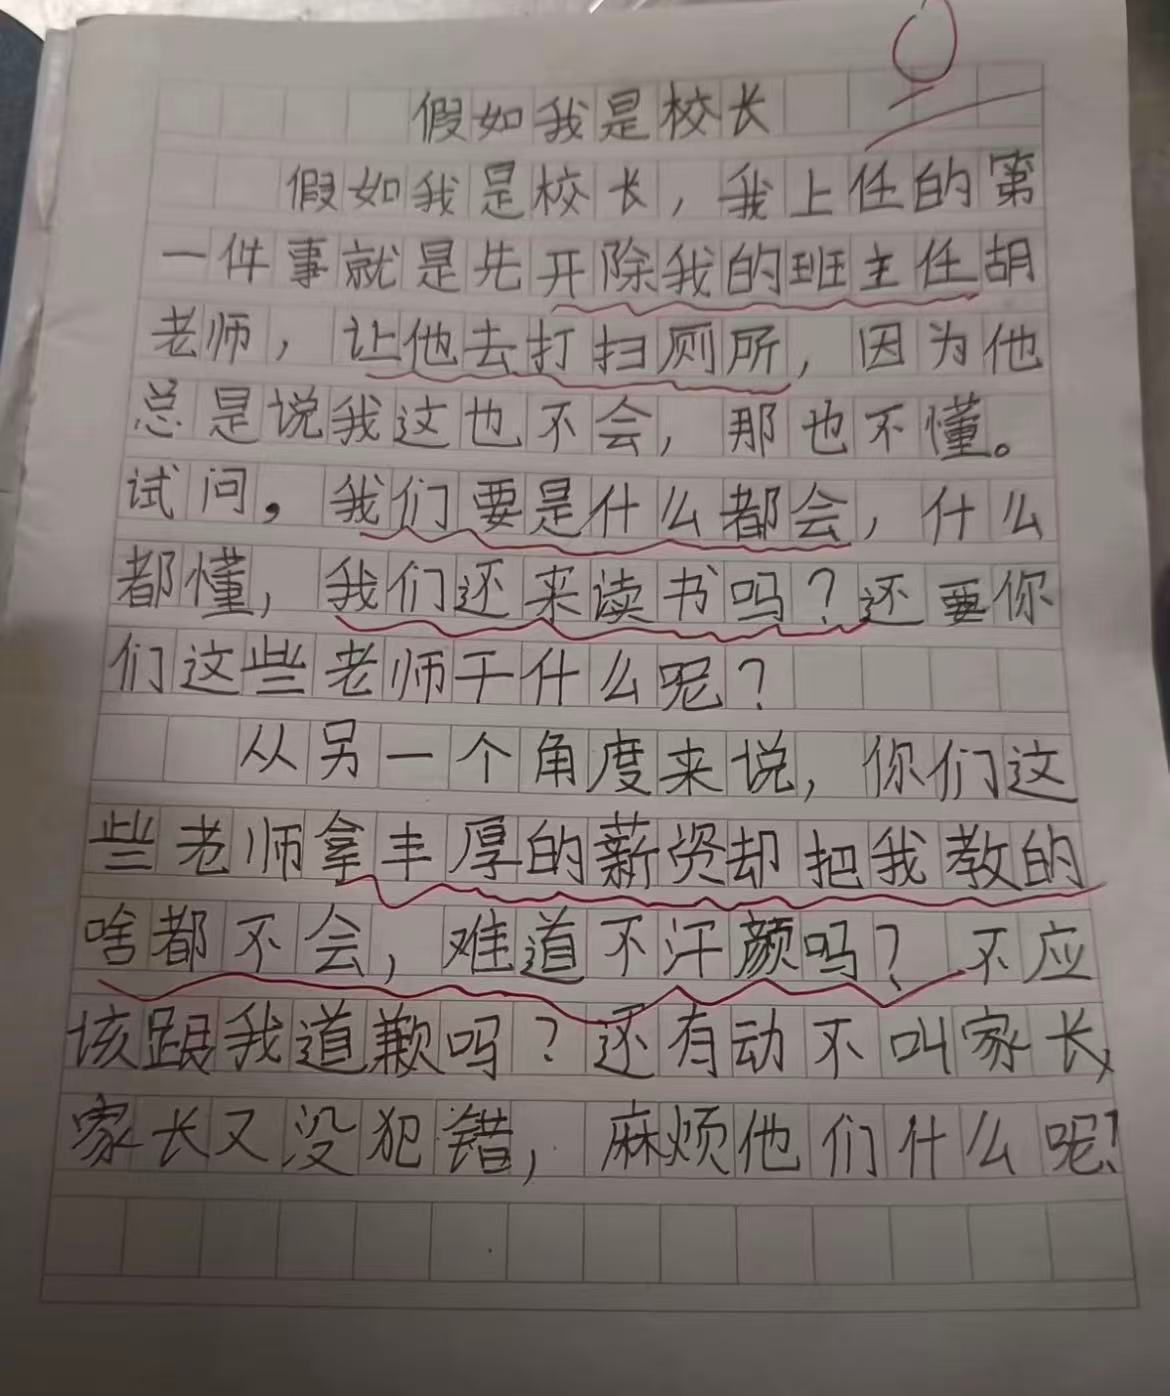 0
假如我是校长
假如我是校长，我上任的第
一件事就是先开除我的班主任胡
老师，让他去打扫厕所，因为他
总是说我这也不会，那也不懂。
试问，我们要是什么都会，什么
都懂，我们还来读书吗？还要你
们这些老师干什么呢？
从另一个角度来说，你们这
些老师拿丰厚的薪资却把我教的
啥都不会，难道不汗颜吗？不应
该跟我道歉吗？还有动不叫家长，
家长又没犯错，麻烦他们什么呢？